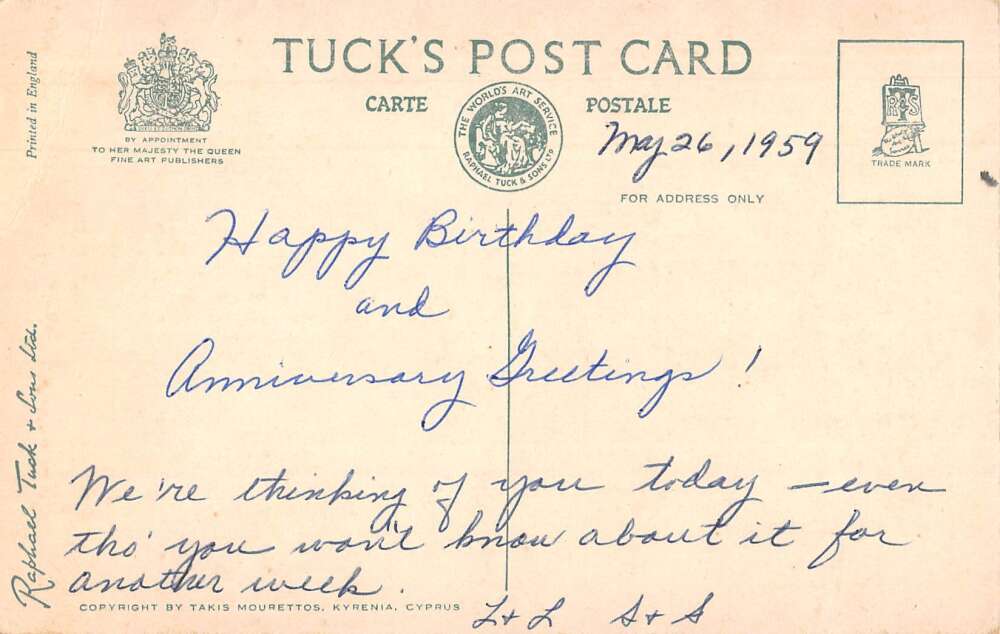 TUCK'S POST CARD
CARTE POSTALE
Printed in England
BY APPOINTMENT
TO HER MAJESTY THE QUEEN
FINE ART PUBLISHERS
THE WORLD'S ART SERVICE
RAPHAEL TUCK & SONS LTD
May 26, 1959
FOR ADDRESS ONLY
RTS
TRADE MARK
Happy Birthday
and
Anniversary Greetings!
We're thinking of you today – even
tho' you won't know about it for
another week.
L + L S + S
Raphael Tuck & Sons Ltd.
COPYRIGHT BY TAKIS MOURETTOS, KYRENIA, CYPRUS